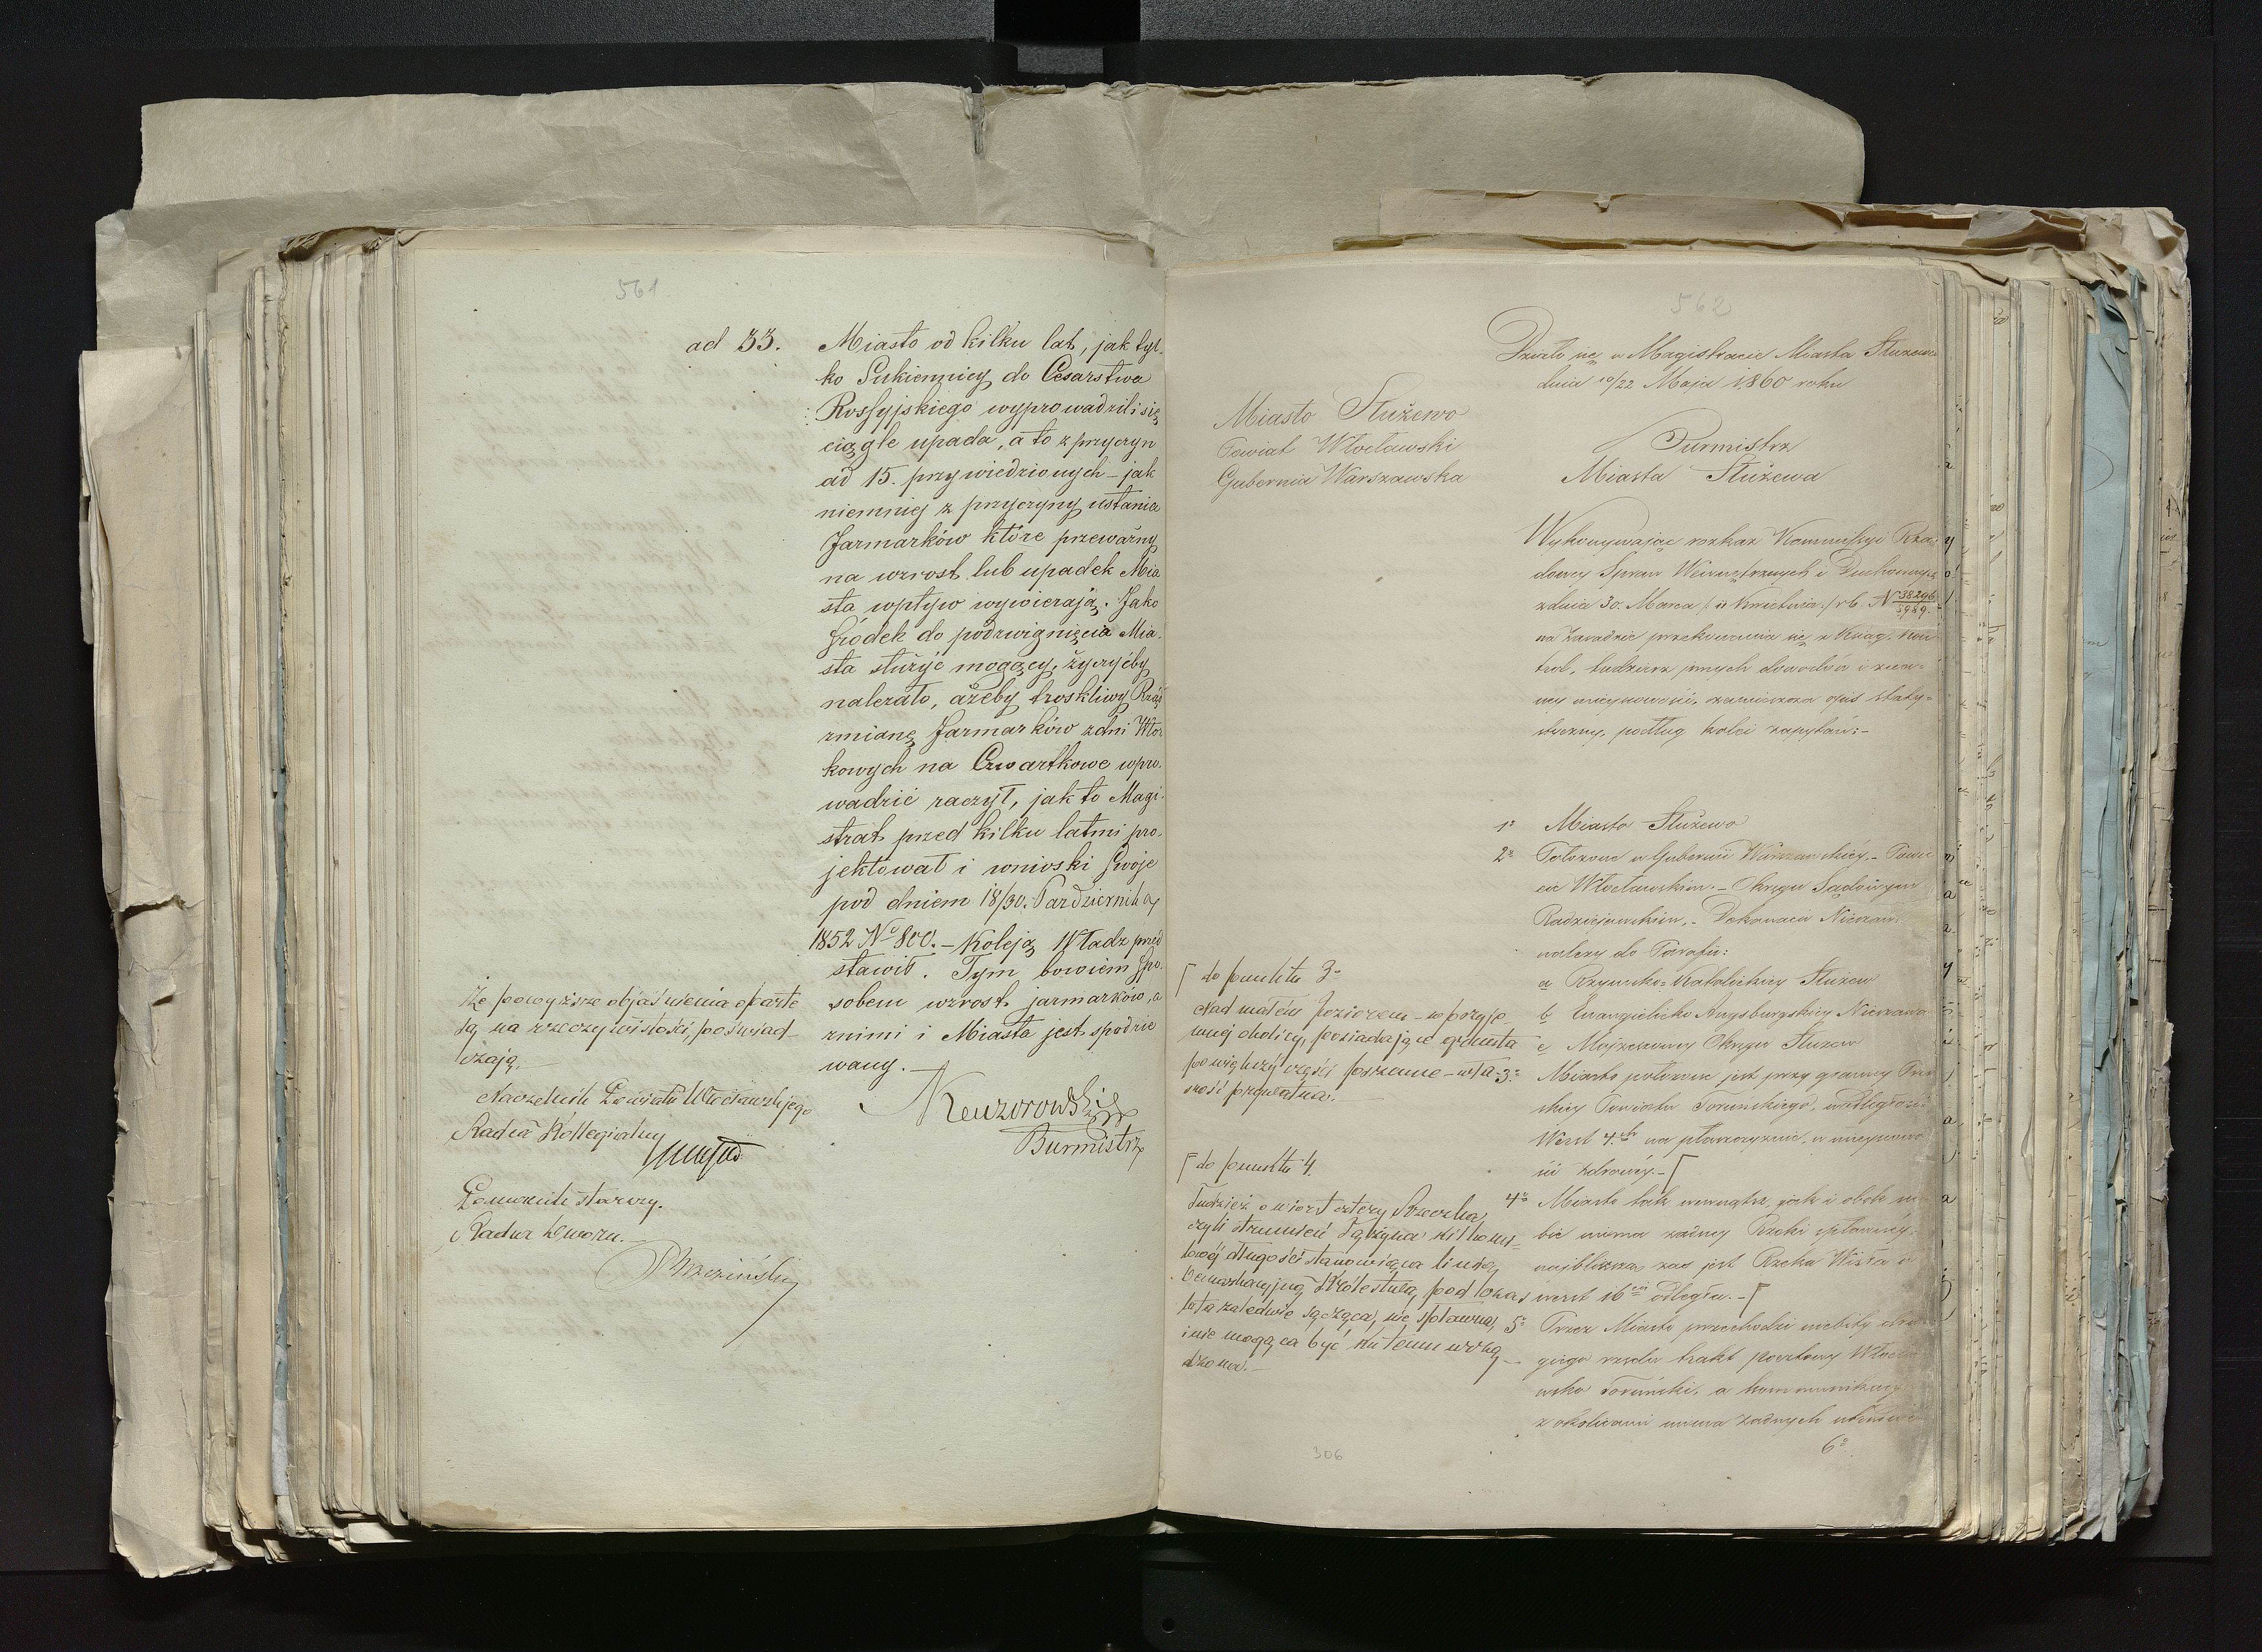 561
ad 33. Miasto od kilku lat, jak tyl-
ko Sukiennicy do Cesarstwa
Rossyjskiego wyprowadzili się
ciągle upada, a to z przyczyn
ad 15. przywiedzionych – jak
niemniej z przyczyny ustania
Jarmarków które przeważny
na wzrost lub upadek Mia
sta wpływ wywierają. Jako
środek do podzwignięcia Mia-
sta służyć mogący, życzyćby
należało, ażeby troskliwy Rząd
zmianę Jarmarków z dni Wtor
kowych na Czwartkowe wpro-
wadzić raczył, jak to Magi-
strat przed kilku latmi pro-
jektował i wnioski swoje
pod dniem 18/30. Października
1852 No 800. – Koleją Władz przed
stawił. Tym bowiem spo-
sobem wzrost jarmarków, a
znimi i Miasta jest spodzie
wany. –
Burmistrz
Że powyższe objaśnienia oparte
są na rzeczywistości, poświad-
czają. –
Naczelnik Powiatu Włocławskiego
Radca Kollegialny
Pomocnik starszy.
Radca Dworu. –
562
Działo się w Magistracie Miasta Służewa
dnia 10/22 Maja 1860 roku
Miasto Służewo
Powiat Włocławski
Gubernia Warszawska
Burmistrz
Miasta Służewa
Wykonywając rozkaz Kommissyi Rzą
dowey Spraw Wewnętrznych i Duchownych
z dnia 30. Marca / 11 Kwietnia / rb. N 38296/5989.
na zasadzie przekonania się z Ksiąg. Kon
trol, tudzież innych dowodów i
miejscowości, zamieszcza opis staty-
styczny, podług kolei zapytań: –
1o Miasto Służewo
2o Położone w Gubernii Warszawskiéy. – Powie
cie Włocławskim. – Okręgu Sądowym
Radziejewskim. – Dekanacie Nieszaw.
należy do Parafii:
a Rzymsko-Katolickiey Służew
b Ewangielicko Augsburgskiey Nieszawa
c Mojżeszowey Okręgu Służew
3o Miasto położone jest przy granicy Pru
skiey Powiatu Toruńskiego, w odległości
Werst 4.ch na płaszczyznie, w miejscowo
ści zdrowéy. –
4o Miasto tak wewnątrz, jak i obok sie
bie niema żadney Rzeki spławnéy.
najbliższa zaś jest Rzeka Wisła o
werst 16 odległa. –
5o Przez Miasto przechodzi niebity dru
giego rzędu trakt pocztowy Włocła
wsko Toruński, a kommunikacya
z okolicami niema żadnych utrudnień
6o
do punktu 3o
Nad małem Jeziorem – w przyje-
mnej okolicy, posiadające grunta
po większéj części pszenne – wła-
sność prywatna.
do punktu 4.
Tudzież o wiorst cztery Rzeczka,
czyli strumień Tążyna kilkomi-
lowéj długości stanowiąca linią
Demarkacyjną Królestwa, pod czas
lata zaledwie sącząca, nie spławna,
i nie mogąca być ku temu urzą
dzona. –
306